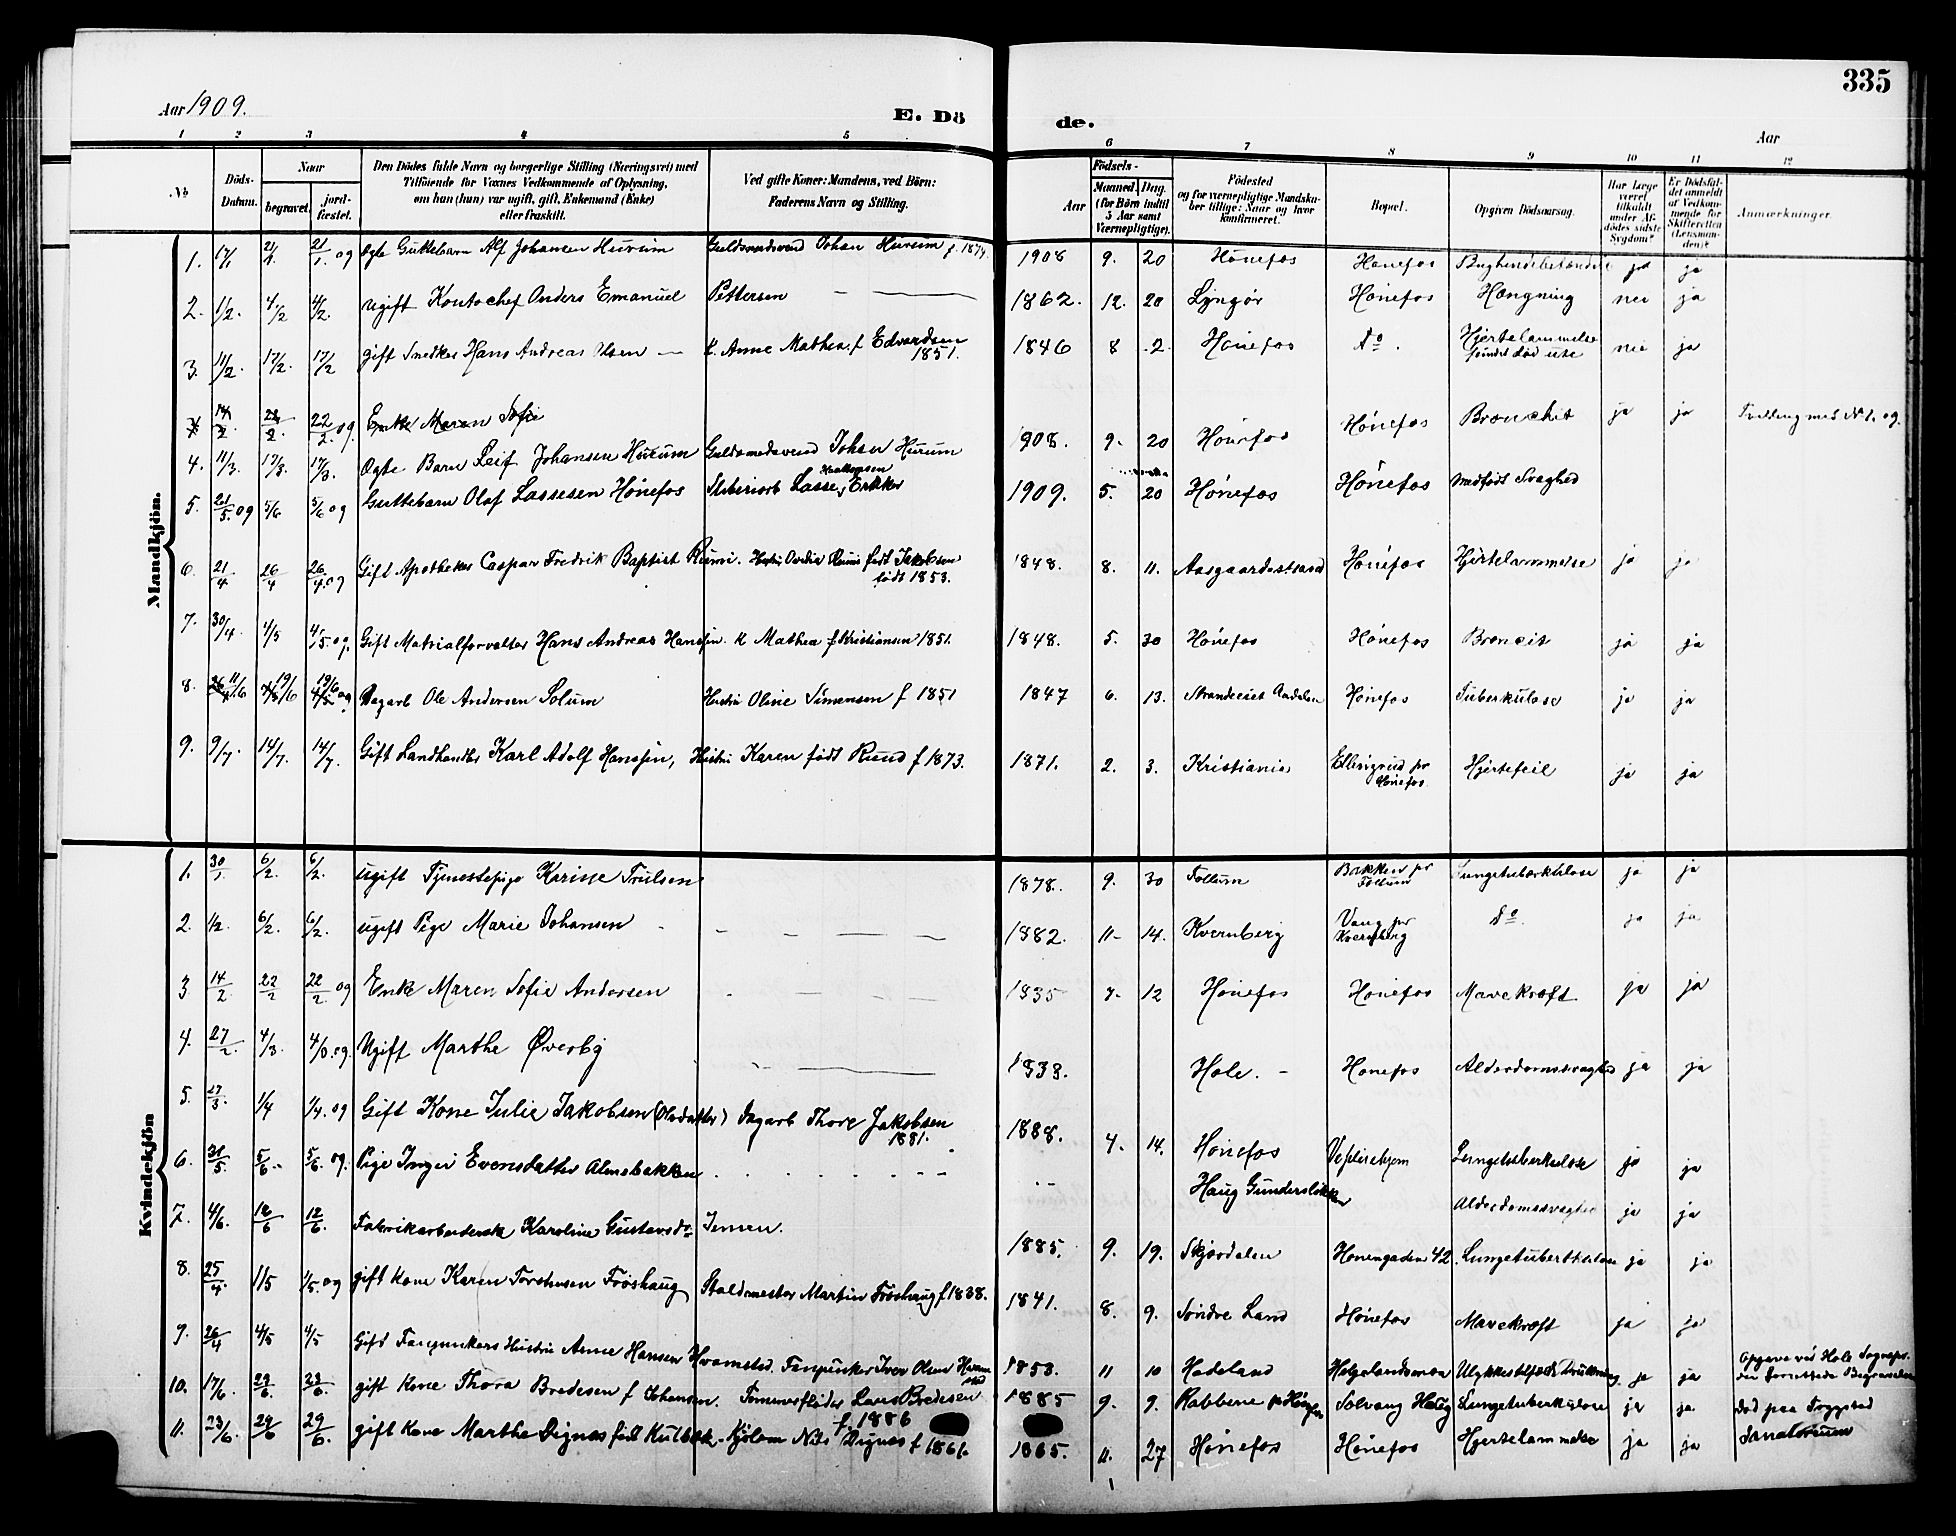 335
Aar 1909.
E. Dö
de.
Aar
1 2 3 4 5 6 7 8 9 10 11 12
№
Döds-Datum.
Naar
begravet.
jord-fæstet.
Den Dödes fulde Navn og borgerlige Stilling (Næringsvei) med
Tilföiende for Voxnes Vedkommende af Oplysning,
om han (hun) var ugift, gift, Enkemand (Enke)
eller fraskilt.
Ved gifte Koner: Mandens, ved Börn:
Faderens Navn og Stilling.
Födsels-
Aar
Maaned. Dag.
(for Börn indtil
5 Aar samt
Værnepligtige).
Födested
og for værnepligtige Mandska-
ber tillige: Naar og hvor
konfirmeret.
Bopæl.
Opgiven Dödsaarsag.
Har læge
været
tilkaldt
under Af-
dödes sidste
Sygdom?
Er Dödsfal-
det anmeldt
af Vedkom-
mende for
Skifteretten
(Lensman-
den)?
Anmærkninger.
Mandkjön.
1. 17/1 21/1 21/1 09 Ægte Guttebarn Alf Johansen Hurum Guldsmedsvend Johan Hurum f. 1874. 1908 9. 20 Hønefos Hønefos ja ja
2. 1/2. 4/2 4/2. ugift Kontochef Anders Emanuel Pettersen 1862. 12. 20 Lyngør Hønefos Hængning nei ja
3. 11/2. 17/2. 17/2 gift Snedker Hans Andreas Olsen — K. Anne Mathea f Edvardsen 1851. 1846 8 2. Hønefos do. Hjertelammelse fundet død ute nei ja
14/2. 22/2. 22/2. 09 Enke Maren Sofie
4. 11/3. 17/3 17/3. Ægte Barn Leif Johansen Hurum Guldsmedsvend Johan Hurum 1908. 9. 20 Hønefos Hønefos Bronchit ja ja Tvilling med № 1. 09.
5. 21/5. 09 5/6 5/6 09 Guttebarn Olaf Lassesen Hønefos Sliberiarb Lasse 1909. 5. 20 Hønefos Hønefos medfødt Svaghed
6. 21/4 26/4 26/4 09 Gift Apotheker Caspar Fredrik Baptist Riumi. født Jakobsen født 1853. 1848. 8. 11. Aasgaardsstrand Hønefos Hjertelammelse ja ja
7. 30/4 4/5 4/5. 09. Gift Matrialforvalter Hans Andreas Hanssen. K Mathea f Kristiansen 1851. 1848. 5. 30 Hønefos Hønefos Broncit ja ja
8. 11/6 19/6 19/6 09 Dagarb Ole Andersen Solum Hustru Oline Simensen f 1851 1847 6. 13. Hønefos Tuberkulose ja ja
9. 9/7. 14/7. 14/7. Gift Landhandler Karl Adolf Hanssen, Hustru Karen født Ruud f 1873. 1871. 2. 3. Kristiania pr Hønefos. Hjertefeil ja ja
Kvindekjön
1. 30/1. 6/2. 6/2. ugift Tjenestepige Karine Trulsen 1878. 9. 30 Follum Bakken pr Follum Lungetuberkulose ja ja
2. 1/2. 6/2. 6/2. ugift Pige Marie Johansen 1882. 11- 14. Kvernberg Vang pr Kvernberg do. ja ja
3 14/2 22/2 22/2 09 Enke Maren Sofie Andersen 1835 12 Hønefos Hønefos Mavekræft ja ja
4. 27/2. 4/3. 09. Ugift Marthe Øverby 1838. Hole. - Hønefos Alderdomssvaghed ja ja
5. 27/3. 1/4 1/4. 09 Gift Kone Julie Jakobsen (Olsdatter) Dagarb Thore Jakobsen 1881. 1888. 4. 14. Hønefos Lungetuberkulose ja ja
6. 31/5 5/6- 5/6. 09. Pige Inger Evensdatter Almebakken Haug Alderdomssvaghed ja ja
7. 4/6. 12/6 12/6. Fabrikarbeiderske Karoline Gustavsd. Jensen. 1885. 9. 19. Hønengaden 42 Lungetuberkulose ja ja
8. 25/4. 1/5 1/5. 09 gift Kone Karen Frøshaug Staldmester Martin Frøshaug f 1838. 1841. 8. 9. Søndre Land Hønefos Mavekræft ja ja
9. 26/4 4/5 4/5 Gift Hustru Anne Hansen Iver Olsen 1853. 11 10 Hadeland ja ja Opgave ved Hole Sognepr. der forrettede Begravelsen
10. 17/6. 23/6. 23/6. gift Kone Thora Bredesen f Johansen. Tømmerfløder Lars Bredesen f. 1886 1885 9. 9. Solvang Haug Lungetuberkulose ja ja. Død paa Sanatorium
11. 23/6. 29/6 29/6. gift Kone Marthe Dignes født Nils Dignes f 1861 1865. 11. 27 Hønefos Hønefos Hjertelammelse ja ja